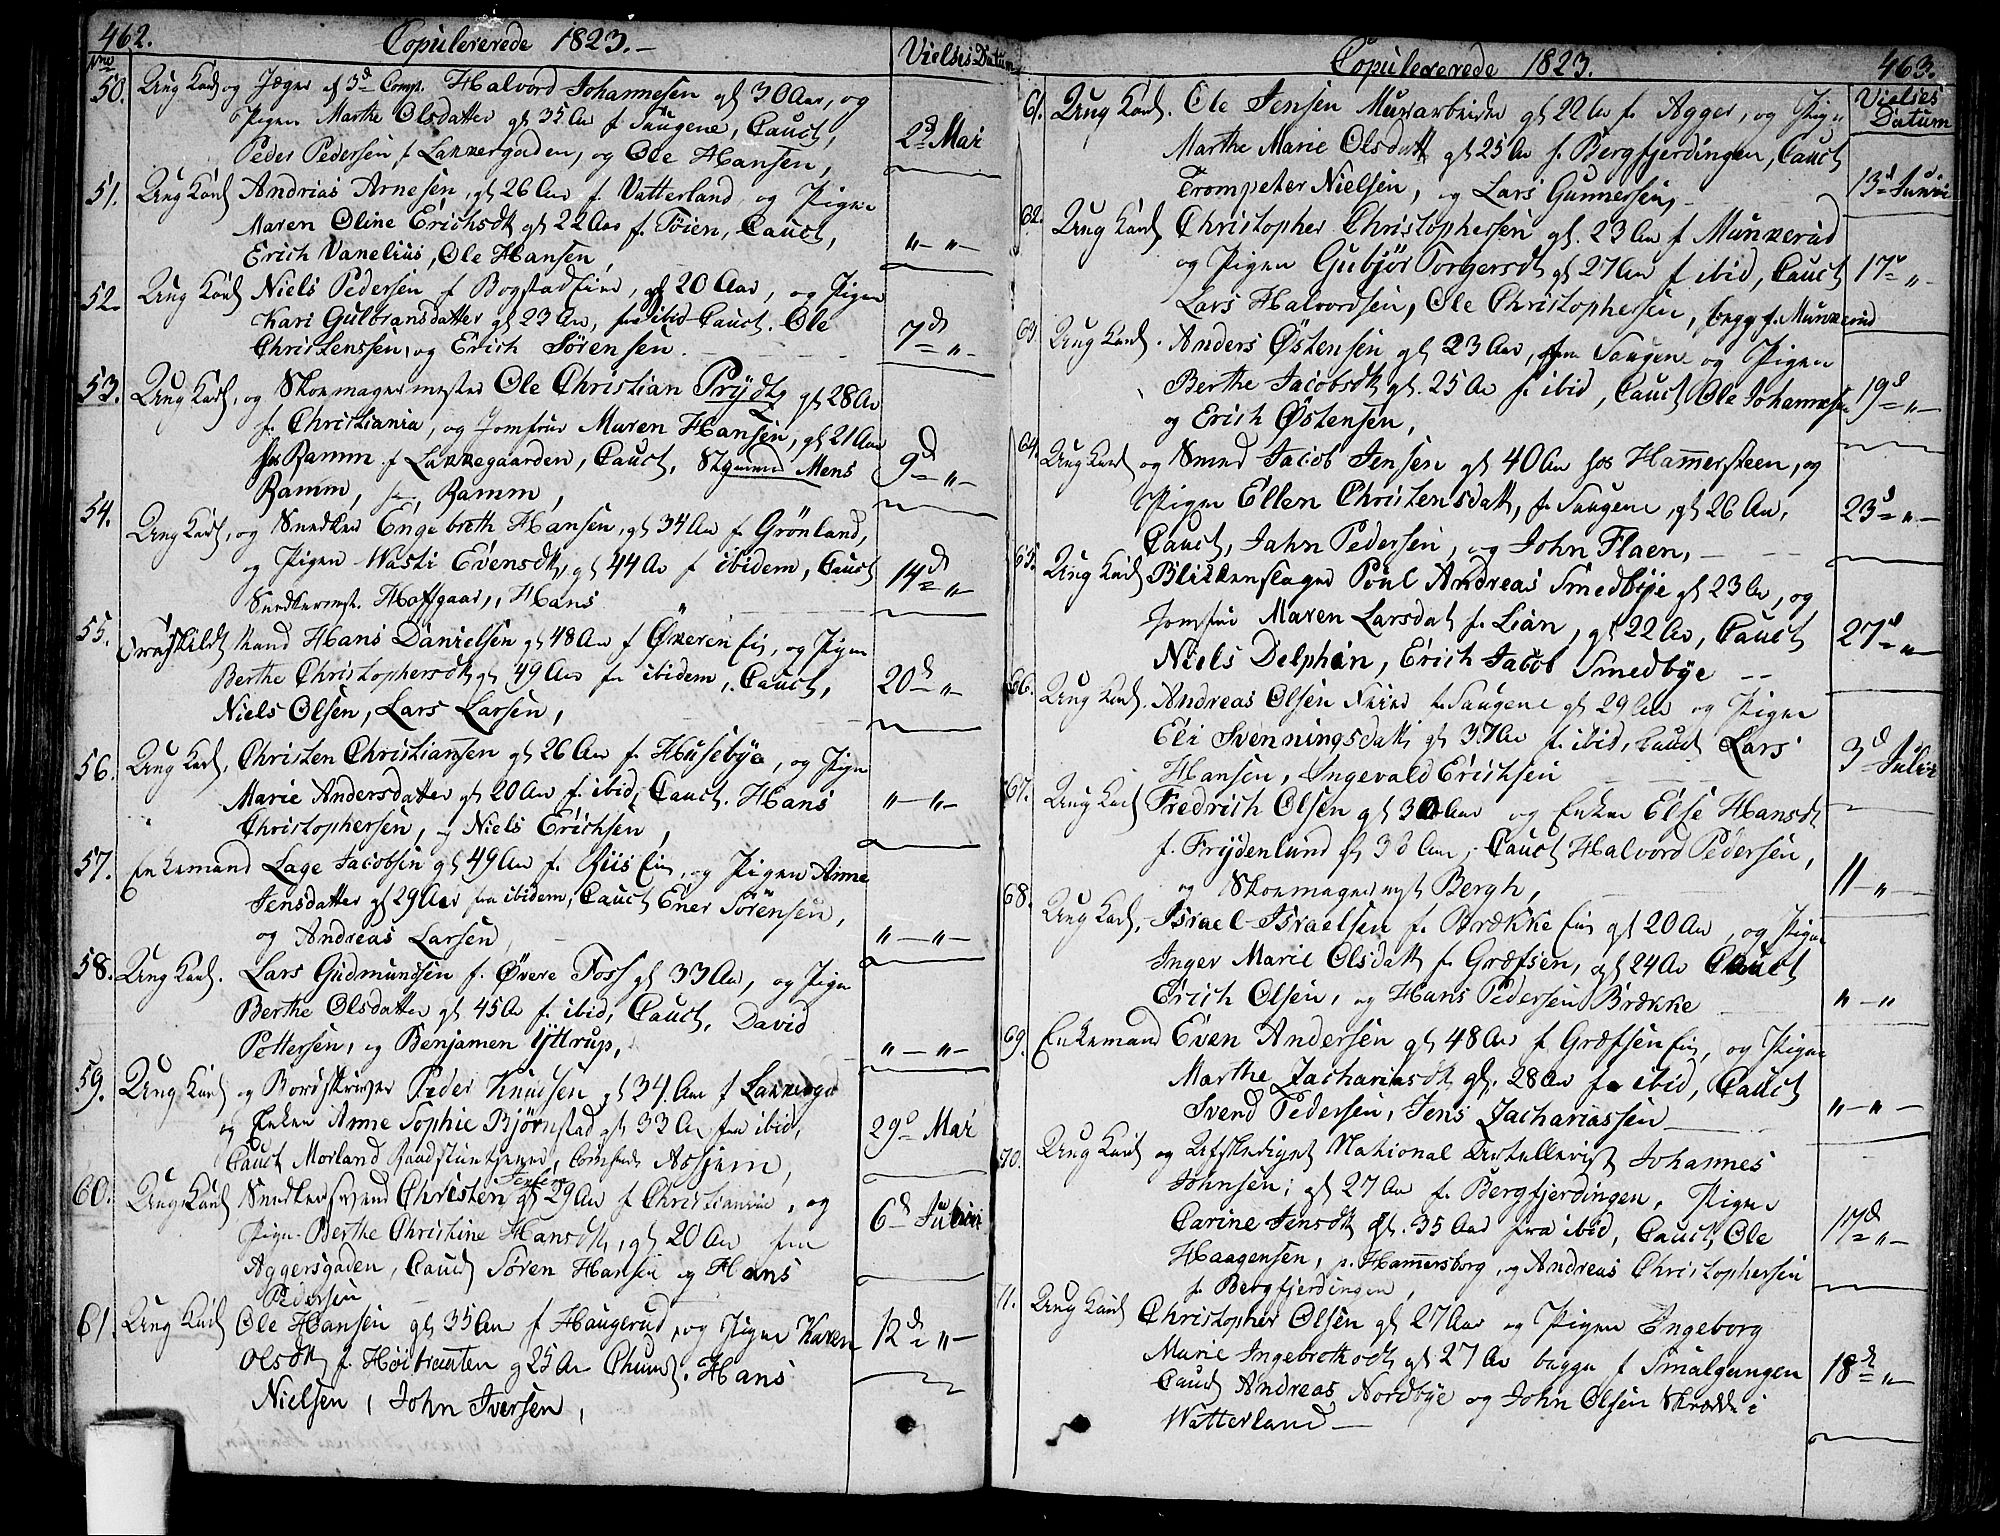 462.
Copulererede 1823.-
Vielses Datum
No
50. Ung Karl og Jæger af 3d Comp. Halvord Johannesen gl 30 Aar, og
Pigen Marthe Olsdatter gl 35 Aar f. Saugene, Cauct,
Peder Pedersen f Lakkergaden, og Ole Hansen,
2d Mai
51. Ung Karl Andrias Arnesen, gl 26 Aar f. Vatterland, og Pigen
Maren Oline Erichsdt gl 22 Aar f. Töien, Cauct,
Erich Vanelius, Ole Hansen
„ – „ –
52 Ung Karl Niels Pedersen f Bogstad Eie, gl 20 Aar, og Pigen
Kari Gulbransdatter gl 23 Aar, fra ibid Cauct. Ole
Christenssen, og Erich Sörensen.
7d „ –
53. Ung Karl, og Skoemagermester Ole Christian Prÿdtz gl 28 Aar
f. Christiania, og Jomfrue Maren Hansen, gl 21 Aar
hos Ramm f Lakkegaarden, Cauct, Mens
Ramm, Ramm,
9d „ –
54. Ung Karl, og Snedker Engebreth Hansen, gl 34 Aar f Grönland,
og Pigen Wasti Evensdt, gl 44 Aar f ibidem, Cauct
Snedkermst. Hoffgaar, Hans
14d „
55. Fraskildt Mand Hans Danielsen gl 48 Aar f Økeren Eie, og Pigen
Berthe Christophersdt gl 49 Aar fr ibidem, Cauct,
Niels Olsen, Lars Larsen,
20d „ –
56. Ung Karl, Christen Christiansen gl 26 Aar f. Husebye, og Pigen
Marie Andersdatter gl 20 Aar f. ibid, Cauct. Hans
Christophersen, og Niels Erichsen,
„ – „ –
57. Enkemand Lage Jacobsen gl 49 Aar f. Riis Eie, og Pigen Anne
Jensdatter gl 29 Aar fra ibidem, Cauct Ener Sörensen,
og Andreas Larsen,
„ – „ –
58. Ung Karl. Lars Gudmundsen f. Øvere Foss gl 33 Aar, og Pigen
Berthe Olsdatter gl 45 Aar f. ibid, Cauct, David
Pottersen, og Benjamen Yttrup,
„ – „ –
59. Ung Karl og Bordskriver Peder Knudsen gl 34. Aar f Lakkega
og Enken Anne Sophie Björnstad gl 33 Aar fra ibid,
Cauct Morland Raadstuetjener, Aasjem,
29d Mai
60. Ung Karl Snedkersvend Christen Jensen gl 29 Aar f Christiania, og
Pigen Berthe Christine Hansdt, gl 20 Aar fra
Aggersgaden, Cauct Sören Hansen og Hans
Pedersen
6d Junii
61. Ung Karl Ole Hansen gl 35 Aar f Haugerud, og Pigen Karen
Olsdt f. Höibraaten g 25 Aar Chuct. Hans
Nielsen, John Iversen,
12d „ –
Copulererede 1823.
463.
Vielses
Datum
61. Ung Karl. Ole Jensen Murarbeider gl 22 Aar f. Agger, og Pigen
Marthe Marie Olsdatt gl 25 Aar f. Bergfjerdingen, Cauct
Trompeter Nielsen, og Lars Gunnersen,
13d Junii
62. Ung Karl Christopher Christophersen gl. 23 Aar f Munkerud
og Pigen Gubjör Torgersdt gl 27 Aar f ibid, Cauct
Lars Halvordsen, Ole Christophersen, begge f. Munkerud
17d „
63. Ung Karl. Anders Östensen gl 23 Aar, fra Saugene og Pigen
Berthe Jacobsdt gl. 25 Aar f. ibid, Cauct, Ole Johannesen
og Erich Östensen,
19d „ –
64. Ung Karl og Smed Jacob Jensen gl 40 Aar hos Hammersteen, og
Pigen Ellen Christensdatt, f. Saugene, gl 26 Aar,
Cauct, Jahn Pedersen, og John Flaen,
23d „ –
65. Ung Karl Blikkenslager Poul Andreas Smedbÿe gl 23 Aar, og
Jomfru Maren Larsdat f. Lian, gl 22 Aar, Cauct
Niels Delphin, Erich Jacob Smedbye
27d „ –
66. Ung Karl. Andreas Olsen f. Saugene gl 29 Aar og Pigen
Eli Svenningsdatt gl 37 Aar f. ibid, Cauct Lars
Hansen, Ingevald Erichsen
3d Julii
67. Ung Karl Fredrich Olsen gl 30 Aar og Enken Else Hansdt
f. Frydenlund gl 38 Aar, Cauct Halvord Pedersen,
og Skoemagermst Bergh,
11 – „ –
68. Ung Karl, Israel Israelsen f. Brække Eie gl 20 Aar, og Pigen
Inger Marie Olsdatt f. Græfsen, gl 24 Aar Cauct
Erich Olsen, og Hans Pedersen Brække
„ – „
69. Enkemand Even Andersen gl 48 Aar f Græfsen Eie, og Pigen
Marthe Zachariasdt gl. 28 Aar fra ibid, Cauct
Svend Pedersen, Jens Zachariassen
„ – „ –
70. Ung Karl og Afskediget National Artellerist Johannes
Johnsen; gl 27 Aar f. Bergfjerdingen, Pigen
Carine Jensdt gl. 35 Aar fra ibid, Cauct, Ole
Haagensen, p. Hammersborg, og Andreas Christophersen
f. Bergfjerdingen,
17d „ –
71. Ung Karl Christopher Olsen gl 27 Aar og Pigen Engeborg
Marie Ingebrethsdt gl 27 Aar begge f Smalgangen
Cauct Andreas Nordbye og John Olsen Skrædder i
Watterland –
18d „ –